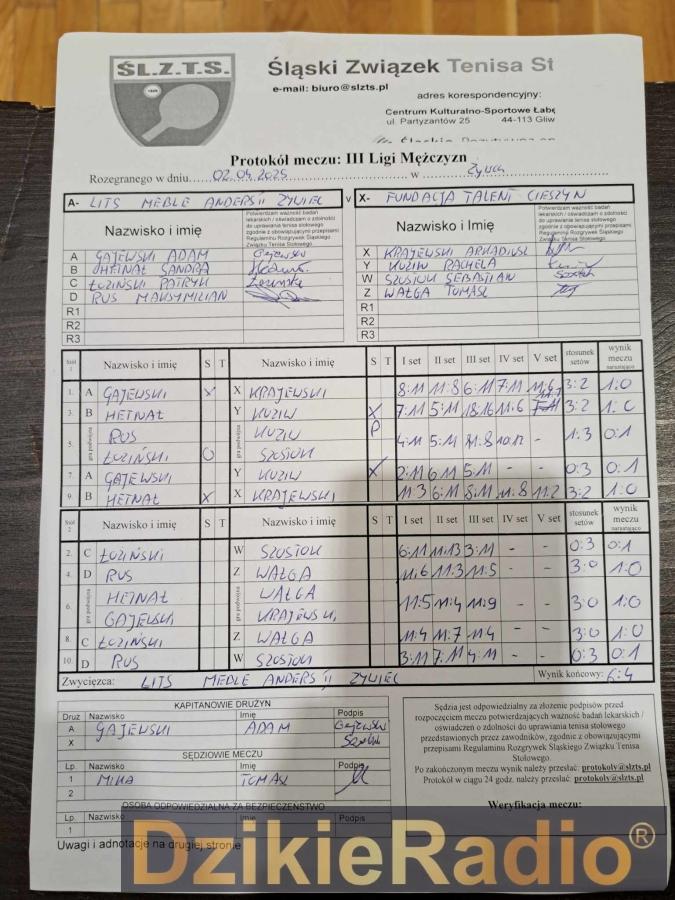 ŚL.Z.T.S.
Śląski Związek Tenisa St
e-mail: biuro@slzts.pl
adres korespondencyjny:
Centrum Kulturalno-Sportowe Łabę
ul. Partyzantów 25 44-113 Gliw
Protokół meczu: III Ligi Mężczyzn
Rozegranego w dniu 02.04.2025 w Żywcu
A- LITS MEBLE ANDERS II ŻYWIEC v X- FUNDACJA TALENT CIESZYN
Nazwisko i imię Potwierdzam ważność badań lekarskich / oświadczam o zdolności do uprawiania tenisa stołowego zgodnie z obowiązującymi przepisami Regulaminu Rozgrywek Śląskiego Związku Tenisa Stołowego
Nazwisko i Imię Potwierdzam ważność badań lekarskich / oświadczam o zdolności do uprawiania tenisa stołowego zgodnie z obowiązującymi przepisami Regulaminu Rozgrywek Śląskiego Związku Tenisa Stołowego
A GAJEWSKI ADAM Gajewski X KRAJEWSKI ARKADIUSZ
B HETNAŁ SANDRA Y KUZIW RACHELA
C ŁOZIŃSKI PATRYK W SZOSTOK SEBASTIAN
D RUS MAKSYMILIAN Z WAŁGA TOMASZ
R1 R1
R2 R2
R3 R3
Stół 1 Nazwisko i imię S T Nazwisko i imię S T I set II set III set IV set V set stosunek setów wynik meczu narastająco
1. A GAJEWSKI X X KRAJEWSKI 8:11 11:8 6:11 7:11 11:6 3:2 1:0
3. B HETNAŁ Y KUZIW X 7:11 5:11 18:16 11:6 11:7 3:2 1:0
5. RUS KUZIW P 4:11 5:11 11:8 10:12 - 1:3 0:1
ŁOZIŃSKI O SZOSTOK
7. A GAJEWSKI Y KUZIW X 2:11 6:11 5:11 - - 0:3 0:1
9. B HETNAŁ X X KRAJEWSKI 11:3 6:11 8:11 11:8 11:2 3:2 1:0
Stół 2 Nazwisko i imię S T Nazwisko i imię S T I set II set III set IV set V set stosunek setów wynik meczu narastająco
2. C ŁOZIŃSKI W SZOSTOK 6:11 11:13 3:11 - - 0:3 0:1
4. D RUS Z WAŁGA 11:6 11:3 11:5 - - 3:0 1:0
6. HETNAŁ WAŁGA 11:5 11:4 11:9 - - 3:0 1:0
GAJEWSKI KRAJEWSKI
8. C ŁOZIŃSKI Z WAŁGA 11:4 11:7 11:4 - - 3:0 1:0
10. D RUS W SZOSTOK 3:11 7:11 4:11 - - 0:3 0:1
Zwycięzca: LITS MEBLE ANDERS II ŻYWIEC Wynik końcowy: 6:4
KAPITANOWIE DRUŻYN
Druż Nazwisko Imię Podpis
A GAJEWSKI ADAM Gajewski
X
SĘDZIOWIE MECZU
Lp. Nazwisko Imię Podpis
1 MIKA TOMASZ
2
OSOBA ODPOWIEDZIALNA ZA BEZPIECZEŃSTWO
Lp. Nazwisko Imię Podpis
1
Uwagi i adnotacje na drugiej stronie
Sędzia jest odpowiedzialny za złożenie podpisów przed
rozpoczęciem meczu potwierdzających ważność badań lekarskich /
oświadczeń o zdolności do uprawiania tenisa stołowego
przedstawionych przez zawodników, zgodnie z obowiązującymi
przepisami Regulaminu Rozgrywek Śląskiego Związku Tenisa
Stołowego.
Po zakończonym meczu wynik należy przesłać: protokoly@slzts.pl
Protokół w ciągu 24 godz. należy przesłać: protokoly@slzts.pl
Weryfikacja meczu:
DzikieRadio®